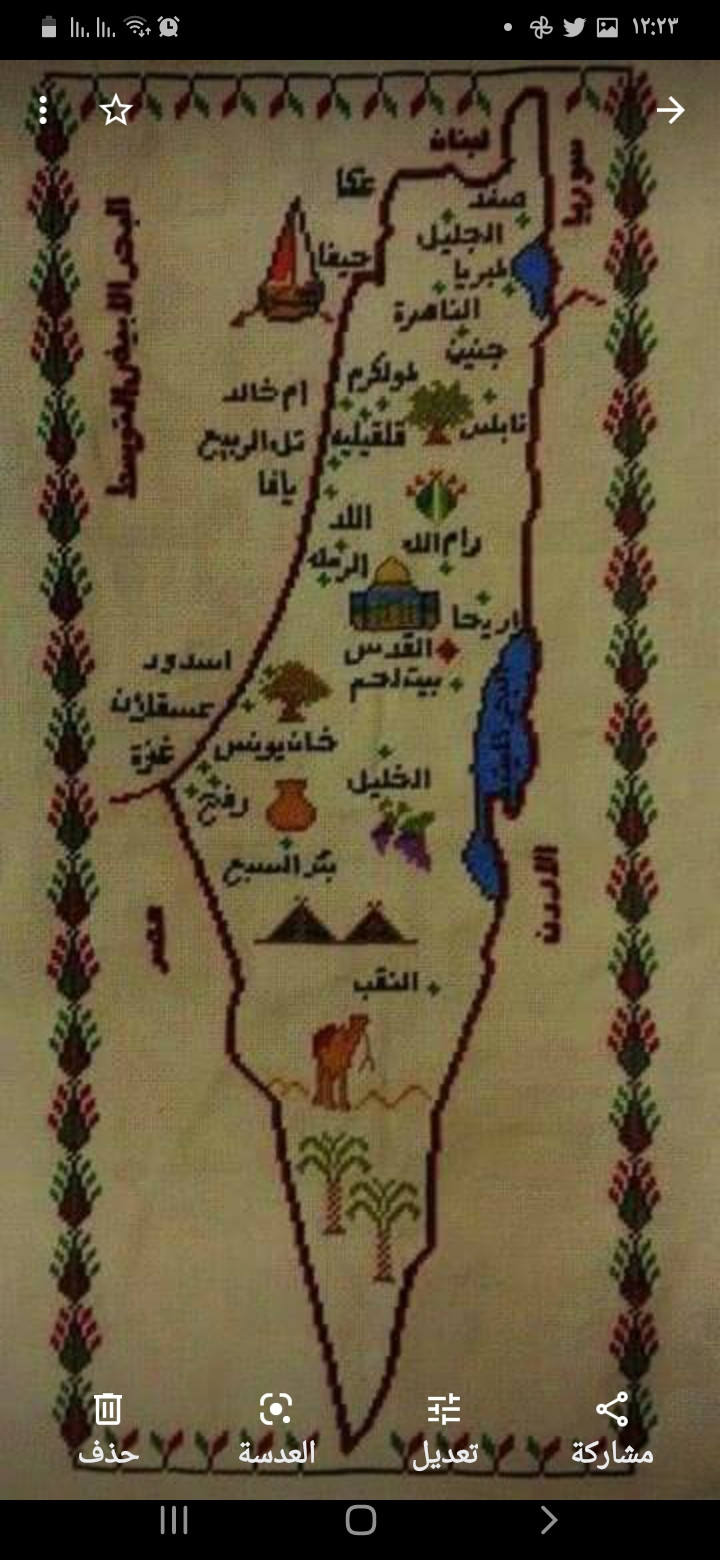 ١٢:٢٣
لبنان
سوريا
عكا
صفد
البحر الابيض المتوسط
الجليل
حيفا
طبريا
الناصرة
جنين
طولكرم
ام خالد
نابلس
قلقيليه
تل الربيع
يافا
اللد
رام الله
الرمله
اريحا
القدس
اسدود
بيت لحم
عسقلان
خان يونس
غزة
الخليل
رفح
بئر السبع
الاردن
مصر
النقب
مشاركة
تعديل
العدسة
حذف